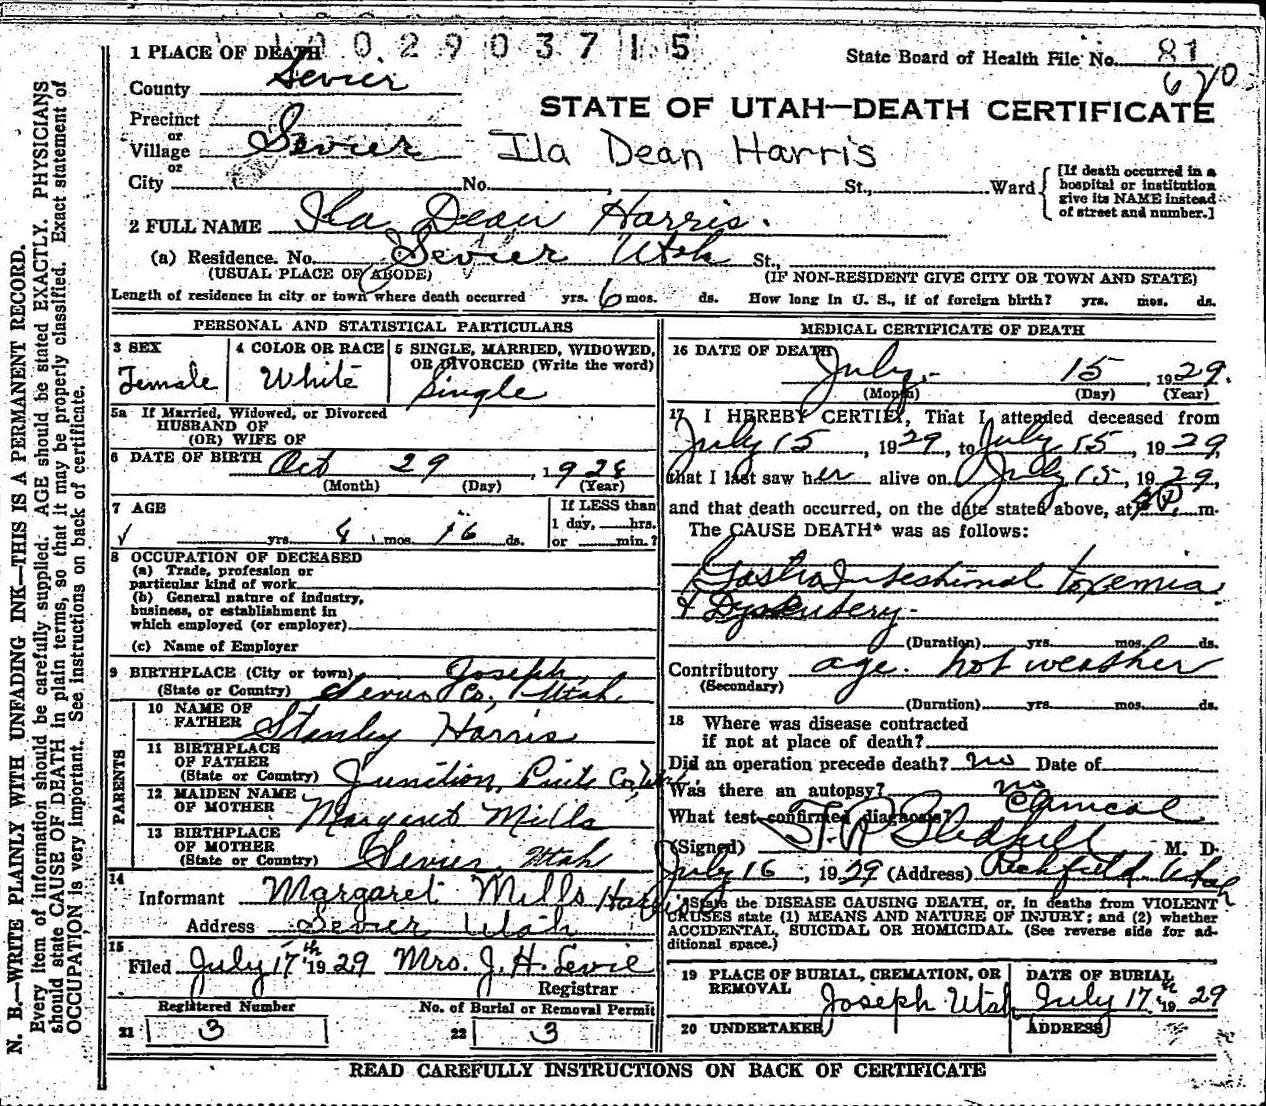 1 PLACE OF DEATH
002903715
State Board of Health File No. 81
670
County Sevier
STATE OF UTAH—DEATH CERTIFICATE
Precinct
or
Village Sevier
Ila Dean Harris
or
City No. , St., Ward
[If death occurred in a
hospital or institution
give its NAME instead
of street and number.]
2 FULL NAME Ila Dean Harris.
(a) Residence. No. Sevier Utah St.,
(USUAL PLACE OF ABODE) (IF NON-RESIDENT GIVE CITY OR TOWN AND STATE)
Length of residence in city or town where death occurred yrs. 6 mos. ds. How long in U. S., if of foreign birth? yrs. mos. ds.
PERSONAL AND STATISTICAL PARTICULARS
3 SEX
Female
4 COLOR OR RACE
White
5 SINGLE, MARRIED, WIDOWED,
OR DIVORCED (Write the word)
Single
5a If Married, Widowed, or Divorced
HUSBAND OF
(OR) WIFE OF
6 DATE OF BIRTH Oct 29, 1928
(Month) (Day) (Year)
7 AGE
yrs. mos. 16 ds.
If LESS than
1 day, hrs.
or min.?
8 OCCUPATION OF DECEASED
(a) Trade, profession or
particular kind of work
(b) General nature of industry,
business, or establishment in
which employed (or employer)
(c) Name of Employer
9 BIRTHPLACE (City or town) Joseph,
(State or Country) Sevier Co, Utah
PARENTS
10 NAME OF
FATHER Stanley Harris
11 BIRTHPLACE
OF FATHER
(State or Country) Junction, Piute Co, Utah.
12 MAIDEN NAME
OF MOTHER Margaret Mills
13 BIRTHPLACE
OF MOTHER
(State or Country) Sevier, Utah
14
Informant Margaret Mills Harris
Address Sevier Utah
15
Filed July 17th 1929 Mrs. J. H. Levie
Registrar
Registered Number
21 3
No. of Burial or Removal Permit
22 3
MEDICAL CERTIFICATE OF DEATH
16 DATE OF DEATH
July 15, 1929.
(Month) (Day) (Year)
17 I HEREBY CERTIFY, That I attended deceased from
July 15, 1929, to July 15, 1929,
that I last saw her alive on July 15, 1929,
and that death occurred, on the date stated above, at m.
The CAUSE DEATH* was as follows:
Gastro Intestinal toxemia
& Dysentery.
(Duration) yrs. mos. ds.
Contributory age. hot weather
(Secondary)
(Duration) yrs. mos. ds.
18 Where was disease contracted
if not at place of death?
Did an operation precede death? no Date of
Was there an autopsy? no
What test confirmed diagnosis? Clinical
(Signed) M. D.
July 16, 1929 (Address) Richfield Utah
*State the DISEASE CAUSING DEATH, or, in deaths from VIOLENT
CAUSES state (1) MEANS AND NATURE OF INJURY; and (2) whether
ACCIDENTAL, SUICIDAL OR HOMICIDAL. (See reverse side for ad-
ditional space.)
19 PLACE OF BURIAL, CREMATION, OR
REMOVAL Joseph Utah
DATE OF BURIAL
July 17th 1929
20 UNDERTAKER
ADDRESS
READ CAREFULLY INSTRUCTIONS ON BACK OF CERTIFICATE
N. B.—WRITE PLAINLY WITH UNFADING INK—THIS IS A PERMANENT RECORD.
Every item of information should be carefully supplied. AGE should be stated EXACTLY. PHYSICIANS
should state CAUSE OF DEATH in plain terms, so that it may be properly classified. Exact statement of
OCCUPATION is very important. See instructions on back of certificate.